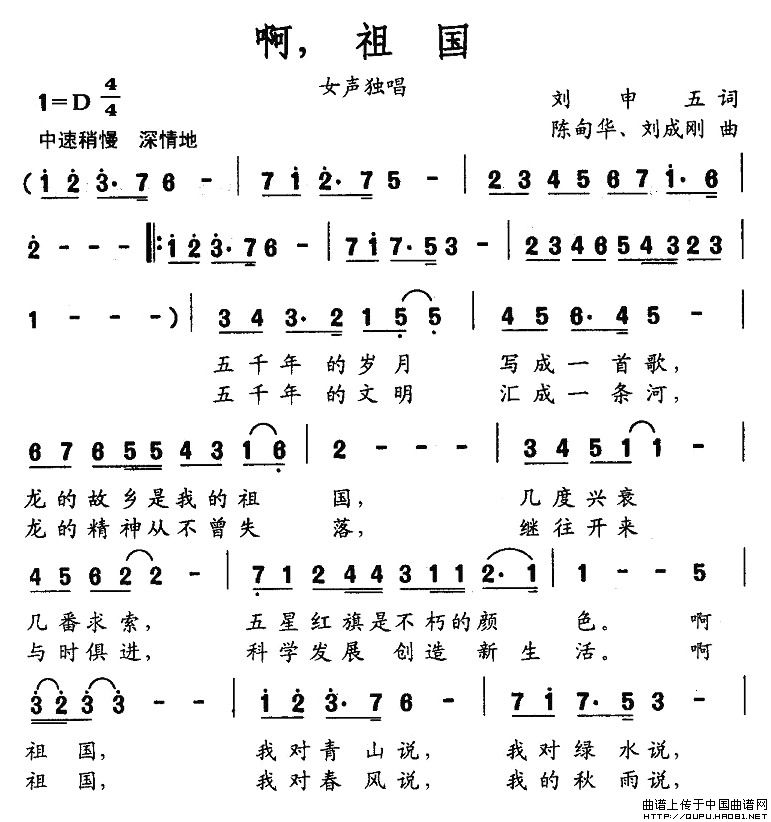 啊，祖国
女声独唱
1=D 4/4
刘申五词
中速稍慢 深情地
陈甸华、刘成刚 曲
(1 2 3· 7 6 - | 7 1 2· 7 5 - | 2 3 4 5 6 7 1· 6 |
2 - - - |: 1 2 3· 7 6 - | 7 1 7· 5 3 - | 2 3 4 6 5 4 3 2 3 |
1 - - - ) | 3 4 3· 2 1 5 5 | 4 5 6· 4 5 - |
五千年 的岁月 写成一首歌，
五千年 的文明 汇成一条河，
6 7 6 5 5 4 3 1 6 | 2 - - | 3 4 5 1 1 - |
龙的故乡是我的祖 国， 几度兴衰
龙的精神从不曾失 落， 继往开来
4 5 6 2 2 - | 7 1 2 4 4 3 1 1 2· 1 | 1 - - 5 |
几番求索， 五星红旗是不朽的颜 色。 啊
与时俱进， 科学发展 创造 新生 活。 啊
3 2 3 3 - - | 1 2 3· 7 6 - | 7 1 7· 5 3 - |
祖国， 我对青山说， 我对绿水说，
祖国， 我对春风说， 我的秋雨说，
曲谱上传于中国曲谱网
HTTP://QUPU.HAO81.NET